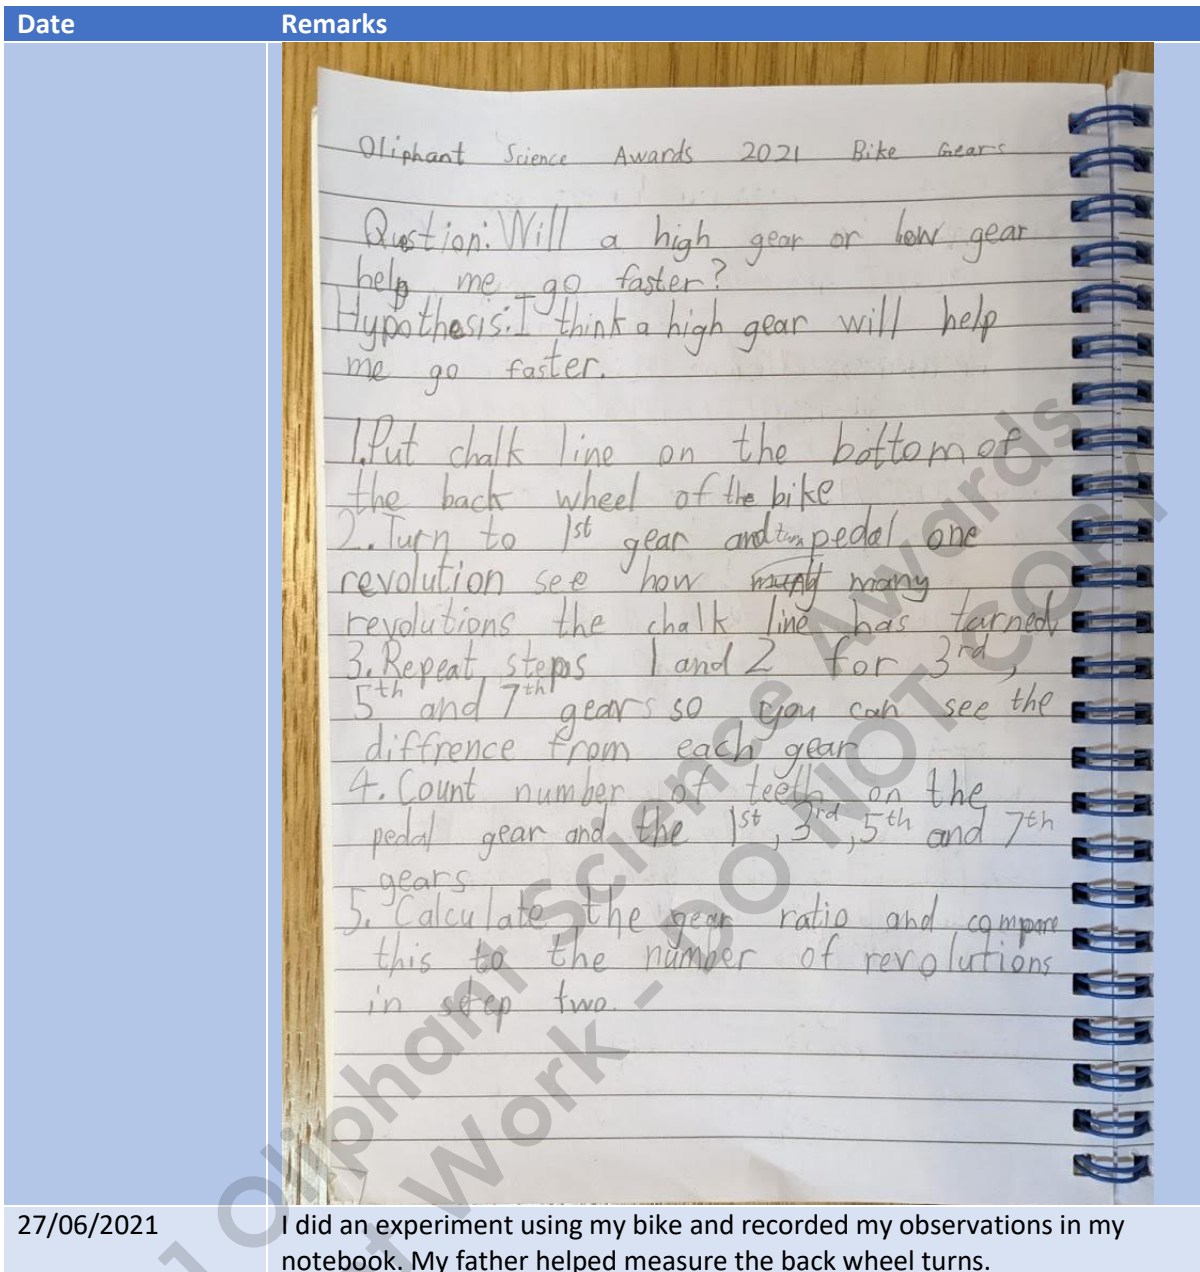 Date Remarks
Oliphant Science Awards 2021 Bike Gears
Question: Will a high gear or low gear
help me go faster?
Hypothesis: I think a high gear will help
me go faster.
1. Put chalk line on the bottom of
the back wheel of the bike
2. Turn to 1st gear and turn pedal one
revolution see how many
revolutions the chalk line has tarned
3. Repeat steps 1 and 2 for 3rd,
5th and 7th gears so you can see the
diffrence from each gear
4. Count number of teeth on the
pedal gear and the 1st, 3rd, 5th and 7th
gears
5. Calculate the gear ratio and compare
this to the number of revolutions
in step two.
27/06/2021 I did an experiment using my bike and recorded my observations in my
notebook. My father helped measure the back wheel turns.
Oliphant Science Awards
Work - DO NOT COPY